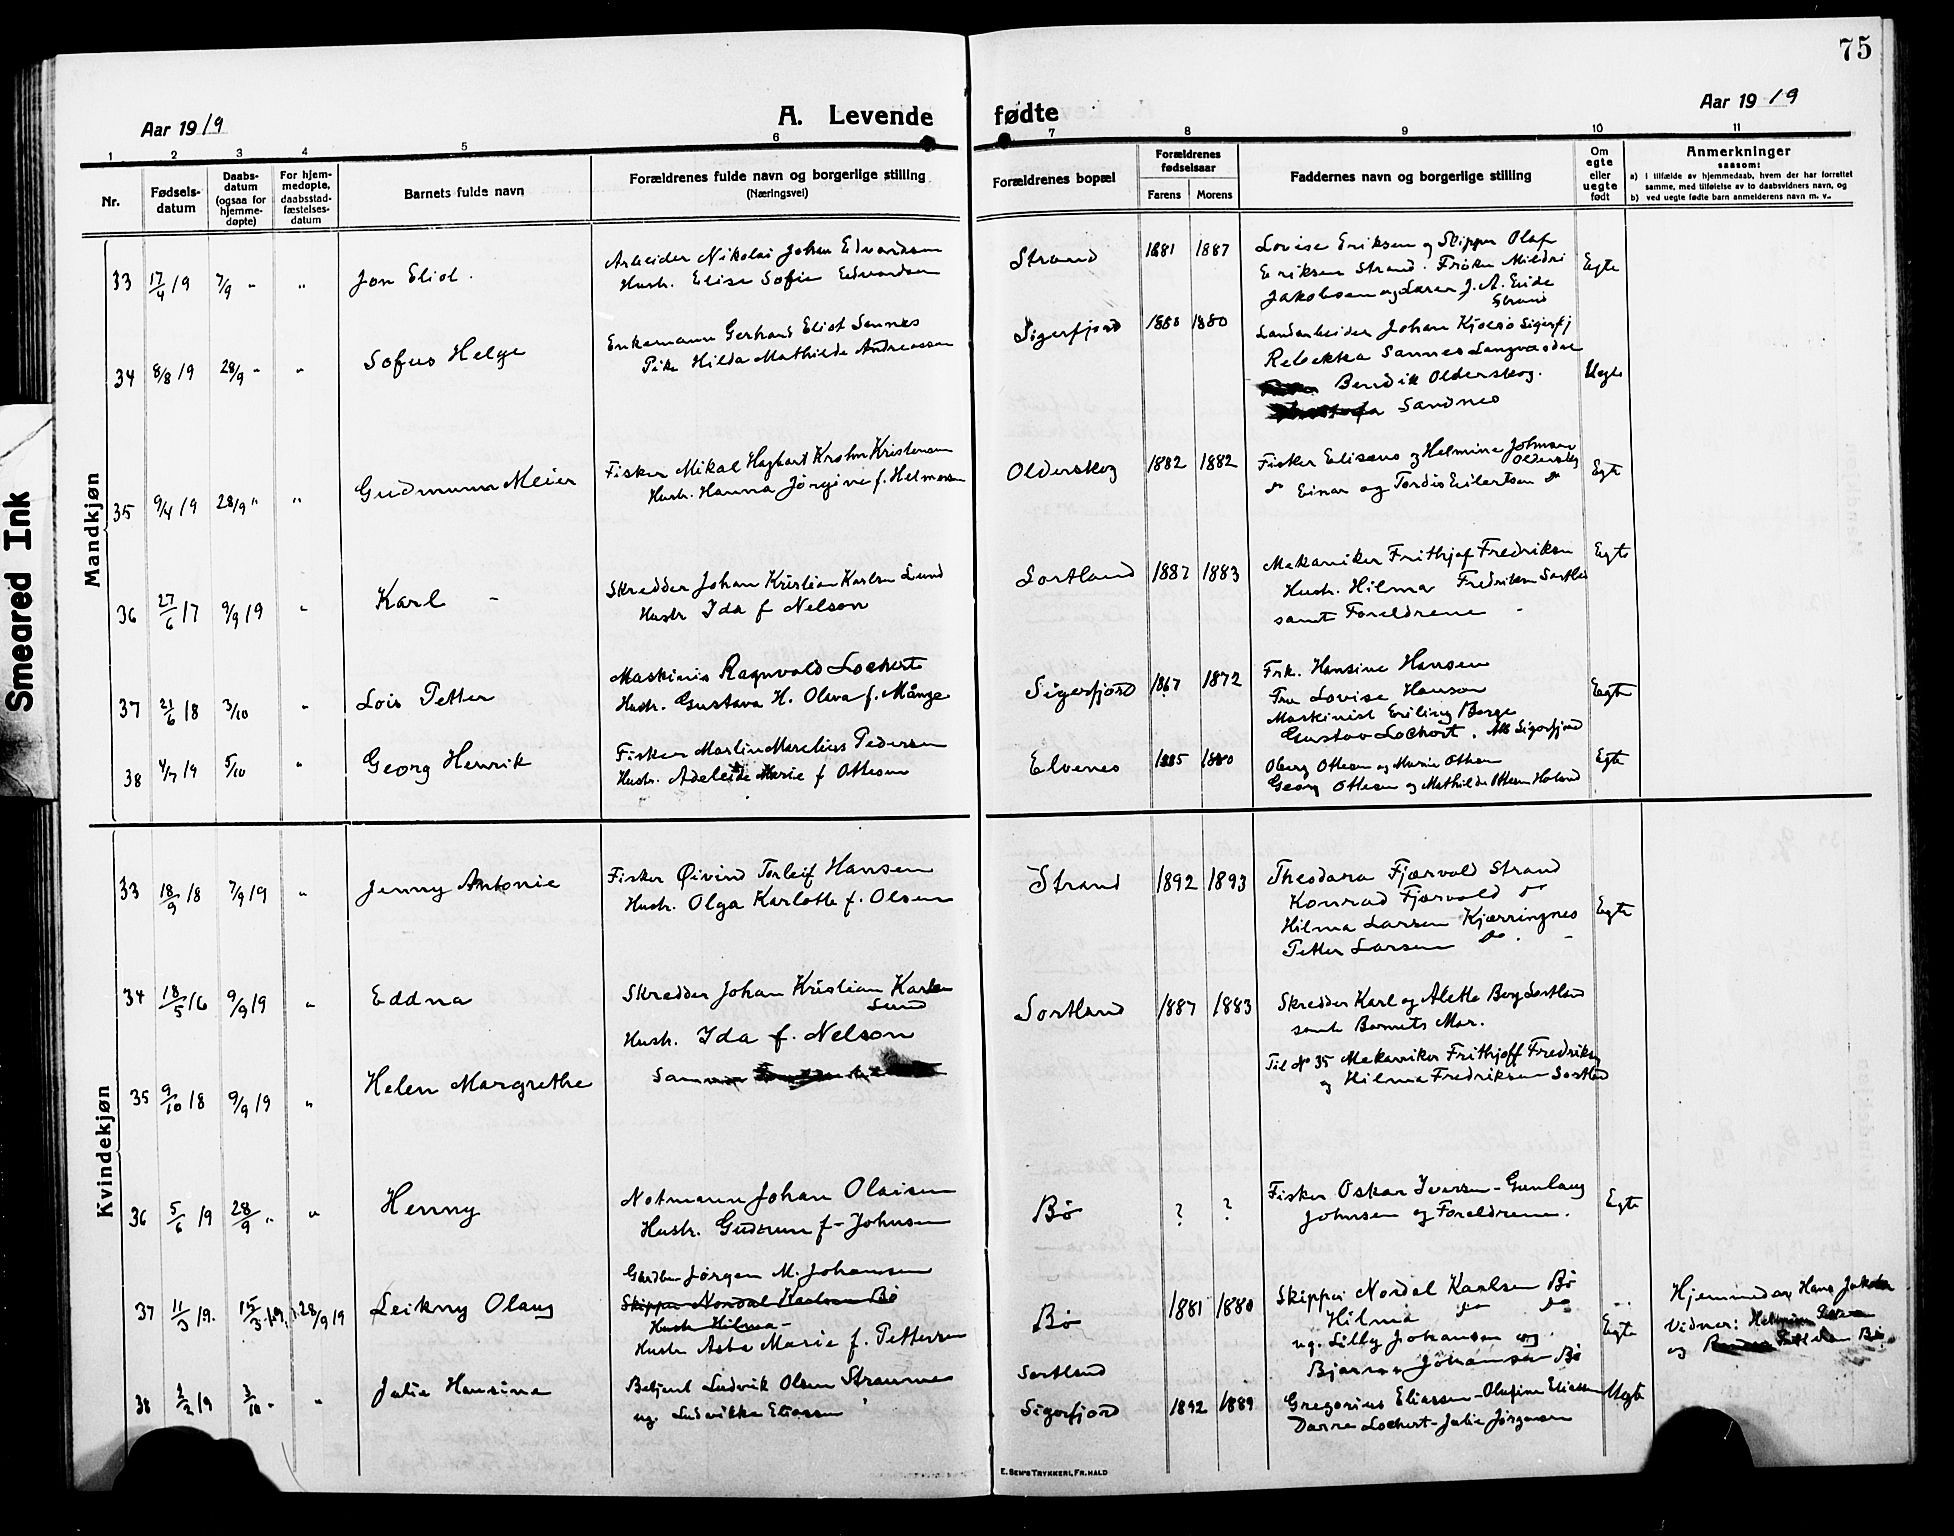 75
Aar 1919
A. Levende
fødte
Aar 1919
1 2 3 4 5 6 7 8 9 10 11
Nr.
Fødsels-
datum
Daabs-
datum
(ogsaa for
hjemme-
døpte)
For hjem-
medøpte,
daabsstad-
fæstelses-
datum
Barnets fulde navn
Forældrenes fulde navn og borgerlige stilling
(Næringsvei)
Forældrenes bopæl
Forældrenes
fødselsaar
Farens Morens
Faddernes navn og borgerlige stilling
Om
egte
eller
uegte
født
Anmerkninger
saasom:
a) i tilfælde av hjemmedaab, hvem der har forrettet
samme, med tilføielse av to daabsvidners navn, og
b) ved uegte fødte barn anmelderens navn m. v..
Smeared Ink
Mandkjøn
33 17/4 19 7/9 " " Jon Eliot.
Arbeider Nikolai Johan Edvardsen
Hustr. Elise Sofie Edvardsen
Strand 1881 1887
Lovise Eriksen og Skipper Olaf
Eriksen Strand. Frøken Mildri
Jakobsen og Lærer J. A. Eide
Strand
Egte
34 8/8 19 28/9 " " Sofus Helge
Enkemann Gerhard Eliot Sannes
Pike Hilda Mathilde Andreassen
Sigerfjord 1880 1880
Landarbeider Johan Kjolsø Sigerfj
Rebekka Sannes Langvasdal
Bendik Olderskog.
Sandnes
Uegte
35 9/4 19 28/9 " " Gudmunn Meier
Fisker Mikal Hagbart Krohn Kristensen
Hustr. Hanna Jørgine f. Helmersen
Olderskog 1882 1882
Fisker Eliseus og Helmine Johnsen
Olderskog
do Einar og Tordis Eilertsen do
Egte
36 27/6 17 9/9 19 " Karl -
Skredder Johan Kristian Karlsen Lund
Hustr Ida f Nelson
Sortland 1887 1883
Mekaniker Frithjof Fredriksen
Hustr. Hilma Fredriksen Sortland
samt Foreldrene
Egte
37 21/6 18 3/10 " Lois Petter
Maskinis Ragnvald Lockert
Hustr. Gustava H. Olava f. Månge
Sigerfjord 1867 1872
Frk. Hansine Hansen
Fru Lovise Hanson
Maskinist Erling Borge
Gustav Lockert. Alle Sigerfjord
Egte
38 4/7 19 5/10 " Georg Henrik
Fisker Martin Marelius Pedersen
Hustr. Adeleide Marie f Ottesen
Elvenes 1885 1880
Oberg Ottesen og Marie Ottesen
Georg Ottesen og Mathilde Ottesen Holand
Egte
Kvindekjøn
33 18/9 18 7/9 19 " Jenny Antonie
Fisker Øivind Torleif Hansen
Hustr. Olga Karlotte f. Olsen
Strand 1892 1893
Theodora Fjærvold Strand
Konrad Fjærvold do
Hilma Larsen Kjærringnes
Petter Larsen do. -
Egte
34 18/5 16 9/9 19 " Eddna
Skredder Johan Kristian Karlsen
Lund
Hustr. Ida f. Nelson
Sortland 1887 1883
Skredder Karl og Alette Berg Sortland
samt Barnets Mor.
35 9/10 18 9/9 19 " Helen Margrethe
Til No 35 Mekaniker Frithjoff Fredriksen
og Hilma Fredriksen Sortland
36 5/6 19 28/9 " " Henny
Notmann Johan Olaisen
Hustr. Gudrun f. Johnsen
Bø ? ?
Fisker Oskar Iversen - Gunlaug
Johnsen og Foreldrene.
Egte
37 11/3 19. 15/3 19. 28/9 19 Leikny Olaug
Gardbr. Jørgen M. Johansen
Skipper Nordal Karlsen Bø
Hustr Hilma -
Hustr Asta Marie f. Pettersen
Bø 1881 1880
Skipper Nordal Karlsen Bø
Hilma do do
ug. Lilly Johansen og
Bjarne Johansen Bø
Egte
Hjemmedøp Hans Jakobsen
Vidner:
og Bø
38 2/2 19 3/10 " " Julie Hansine
Betjent Ludvik Olsen Straumnes
ug. Ludvikke Eliassen
Sortland
Sigerfjord 1892 1889
Gregorius Eliassen - Olufine Eliassen
Darre Lockert - Julie Jørgensen
Uegte
E. SEM'S TRYKKERI, FR.HALD